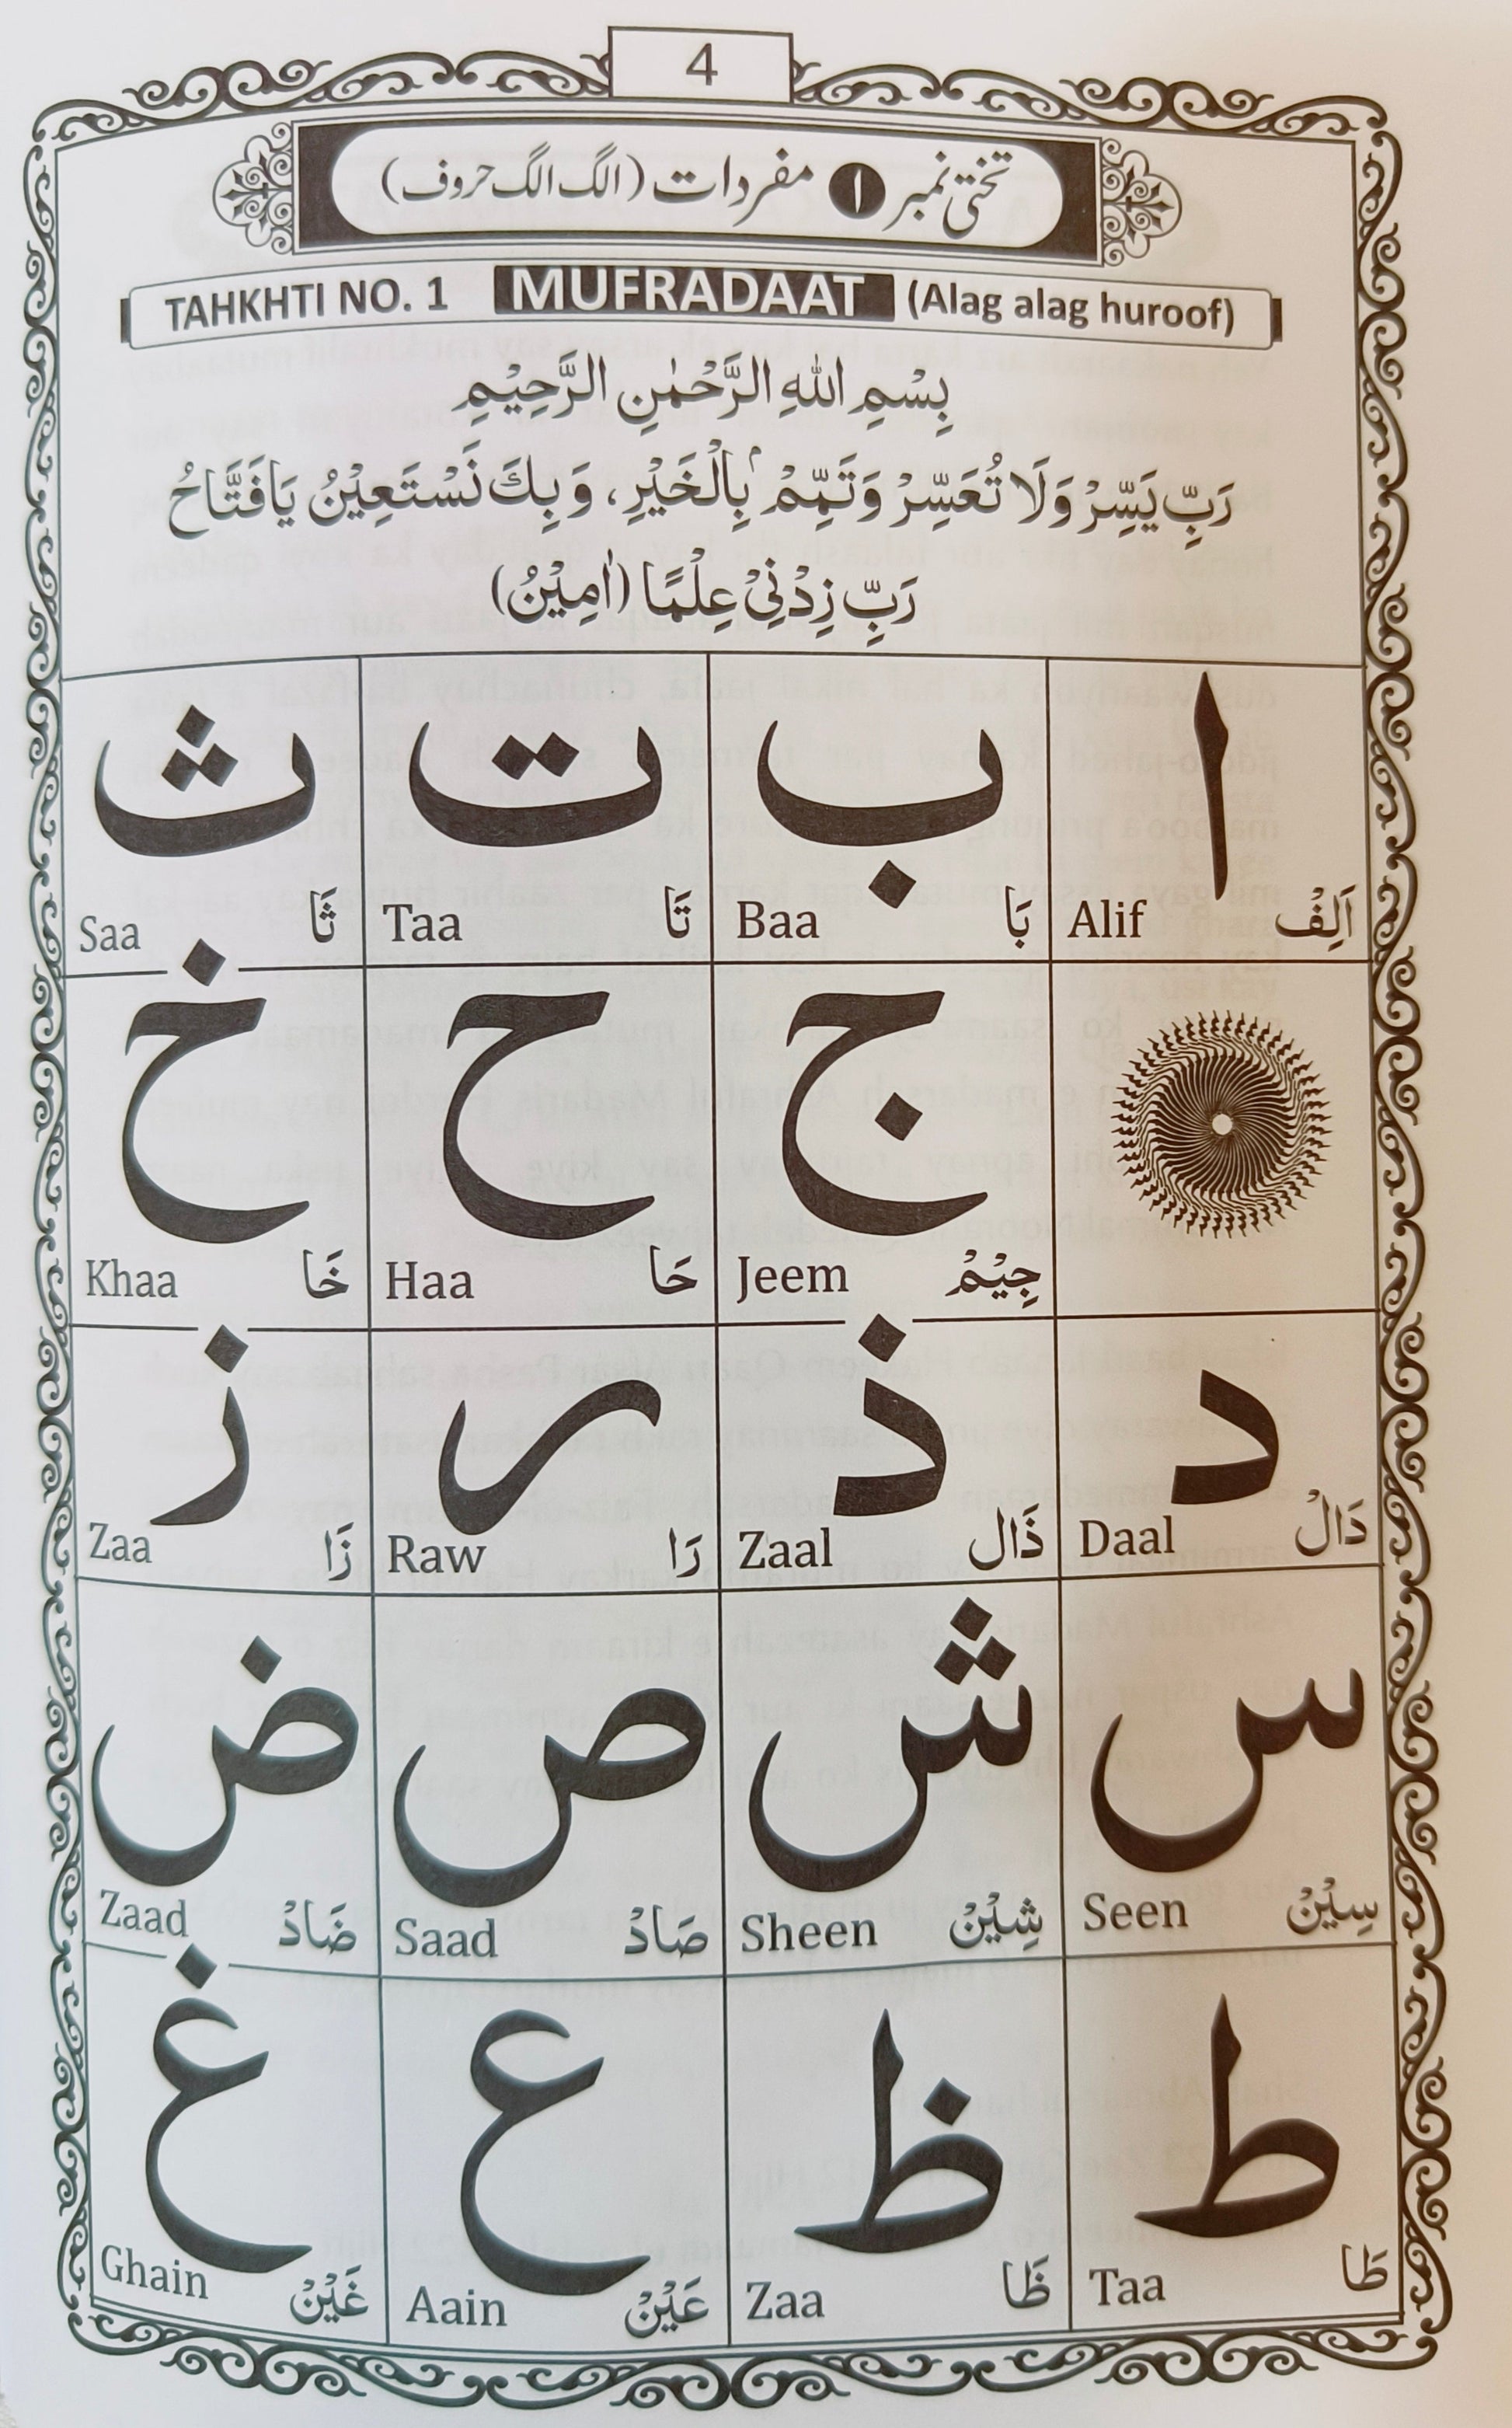 4
تختی نمبر ۱ مفردات (الگ الگ حروف)
TAHKHTI NO. 1 MUFRADAAT (Alag alag huroof)
بِسْمِ اللهِ الرَّحْمٰنِ الرَّحِيْمِ
رَبِّ يَسِّرْ وَلَا تُعَسِّرْ وَتَمِّمْ بِالْخَيْرِ، وَبِكَ نَسْتَعِيْنُ يَافَتَّاحُ
رَبِّ زِدْنِيْ عِلْمًا (اٰمِيْنُ)
ا ب ت ث
اَلِفْ Alif بَا Baa تَا Taa ثَا Saa
ج ح خ
جِيْمْ Jeem حَا Haa خَا Khaa
د ذ ر ز
دَالْ Daal ذَال Zaal رَا Raw زَا Zaa
س ش ص ض
سِيْنْ Seen شِيْنْ Sheen صَادْ Saad ضَادْ Zaad
ط ظ ع غ
طَا Taa ظَا Zaa عَيْنْ Aain غَيْنْ Ghain